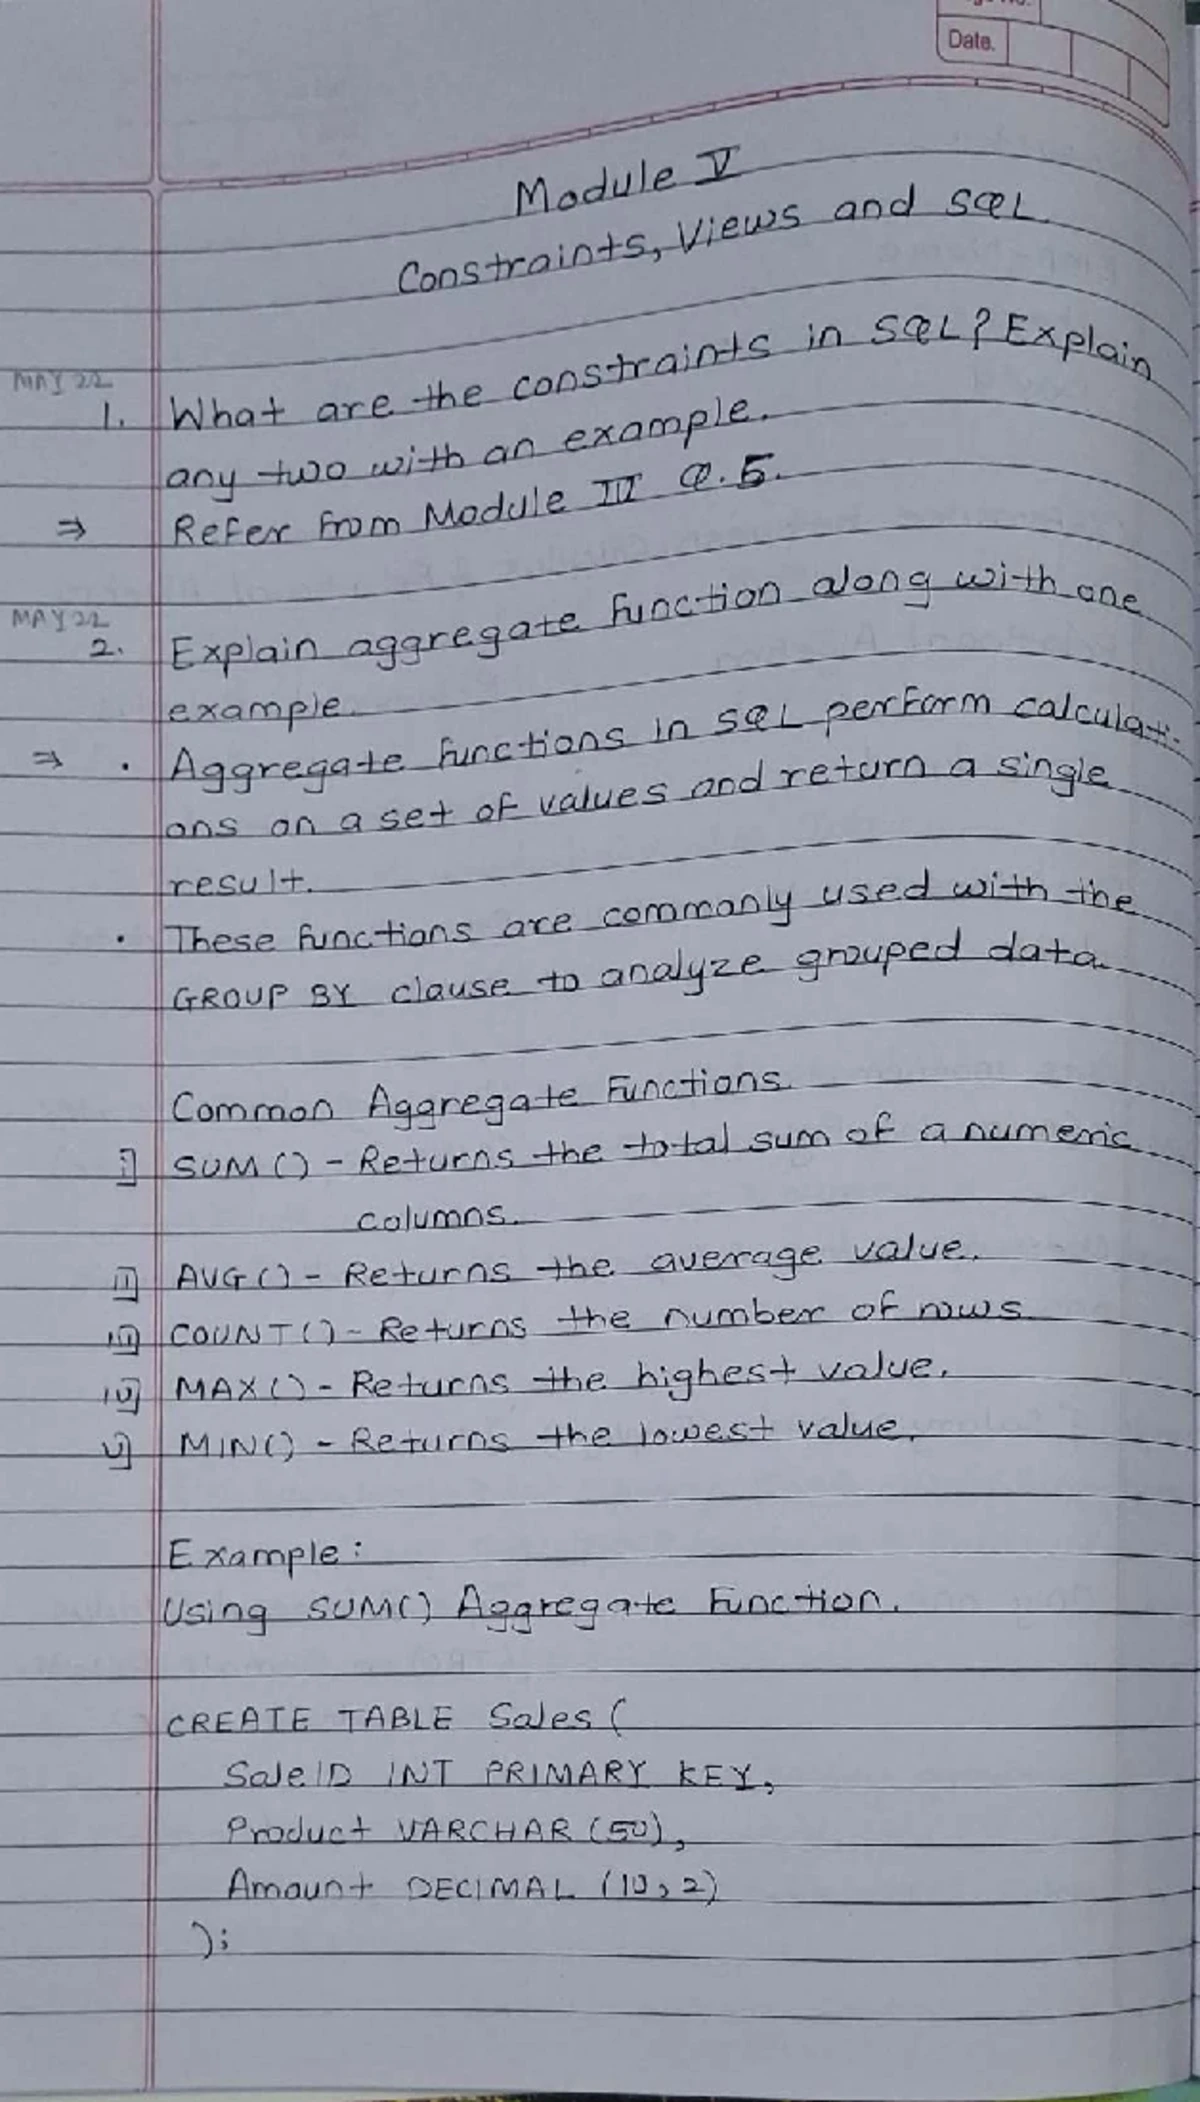 Date.
Module V
Constraints, Views and SQL
MAY 22
1. What are the constraints in SQL? Explain
any two with an example.
⇒ Refer from Module III Q.5.
MAY 22
2. Explain aggregate function along with one
example.
⇒ • Aggregate functions in SQL perform calculati-
ons on a set of values and return a single
result.
• These functions are commonly used with the
GROUP BY clause to analyze grouped data.
Common Aggregate Functions.
i] SUM() - Returns the total sum of a numeric
columns.
ii] AVG() - Returns the average value.
iii] COUNT() - Returns the number of rows.
iv] MAX() - Returns the highest value.
v] MIN() - Returns the lowest value.
Example:
Using SUM() Aggregate Function.
CREATE TABLE Sales (
SaleID INT PRIMARY KEY,
Product VARCHAR (50),
Amount DECIMAL (10,2)
);